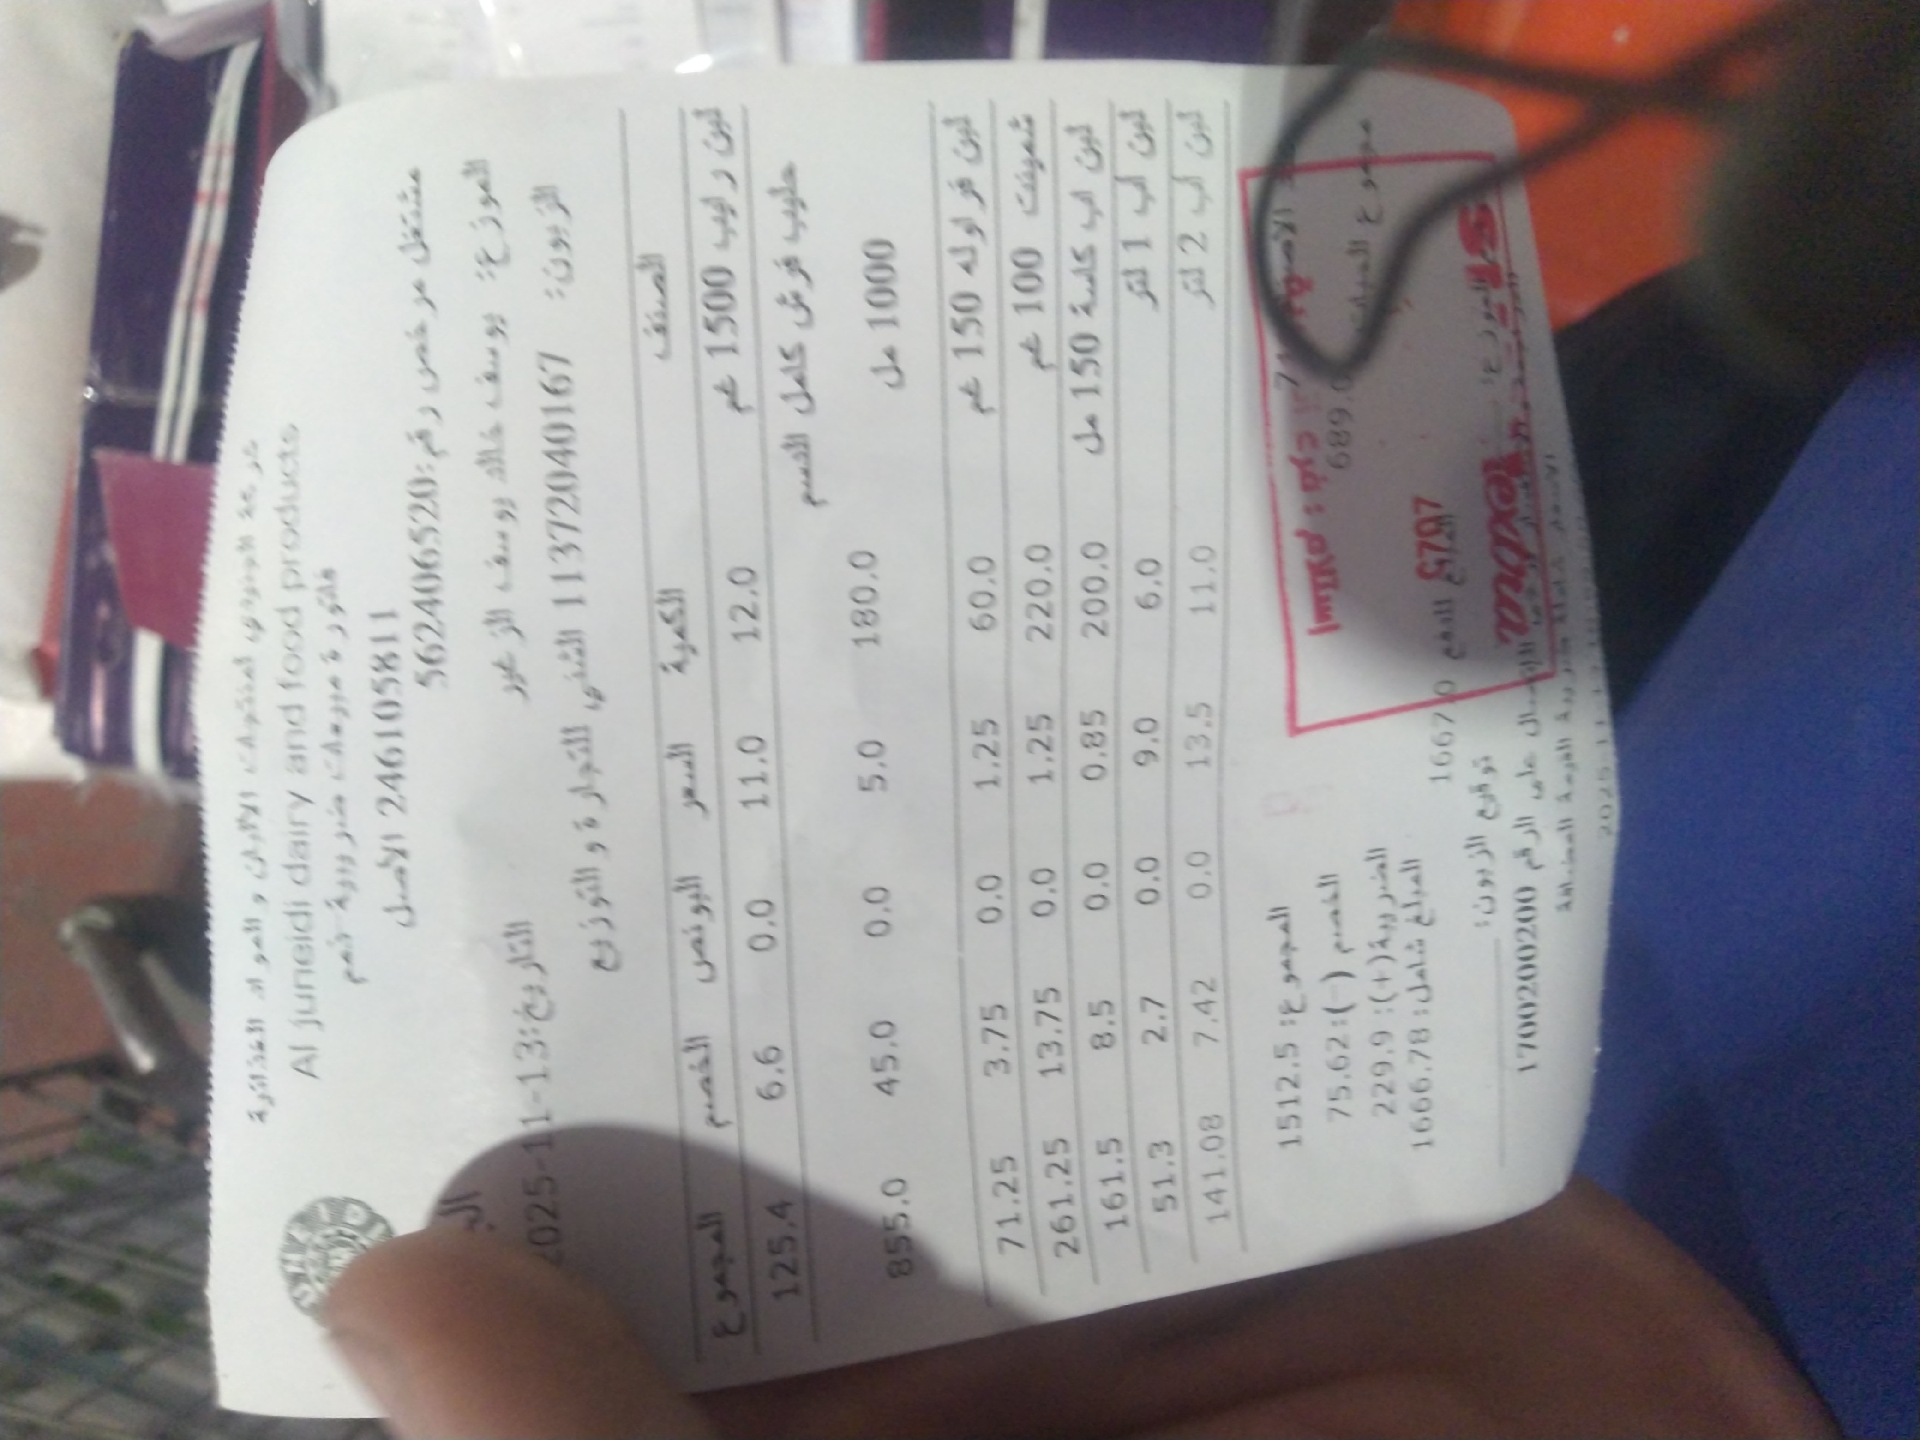 شركة الجنيدي لمنتوجات الألبان و المواد الغذائية
Al juneidi dairy and food products
فاتورة مبيعات ضريبية-خصم
246105811 الأصل
مشتغل مرخص رقم:562406520
الموزع: يوسف خالد يوسف الزعور
التاريخ:13-11-2025
الزبون: 11372040167 المثنى للتجارة و التوزيع
الصنف الكمية السعر البونص الخصم المجموع
لبن رايب 1500 غم 12.0 11.0 0.0 6.6 125.4
حليب فرش كامل الدسم
1000 مل 180.0 5.0 0.0 45.0 855.0
لبن فراوله 150 غم 60.0 1.25 0.0 3.75 71.25
شمينت 100 غم 220.0 1.25 0.0 13.75 261.25
لبن اب كاسة 150 مل 200.0 0.85 0.0 8.5 161.5
لبن اب 1 لتر 6.0 9.0 0.0 2.7 51.3
لبن اب 2 لتر 11.0 13.5 0.0 7.42 141.08
المجموع: 1512.5
الخصم (-): 75.62
الضريبة(+): 229.9
المبلغ شامل: 1666.78
عدد الأصناف: 7
689.0
1667.0
استلام
توقيع الزبون:
الموزع:
على الرقم 1700200200